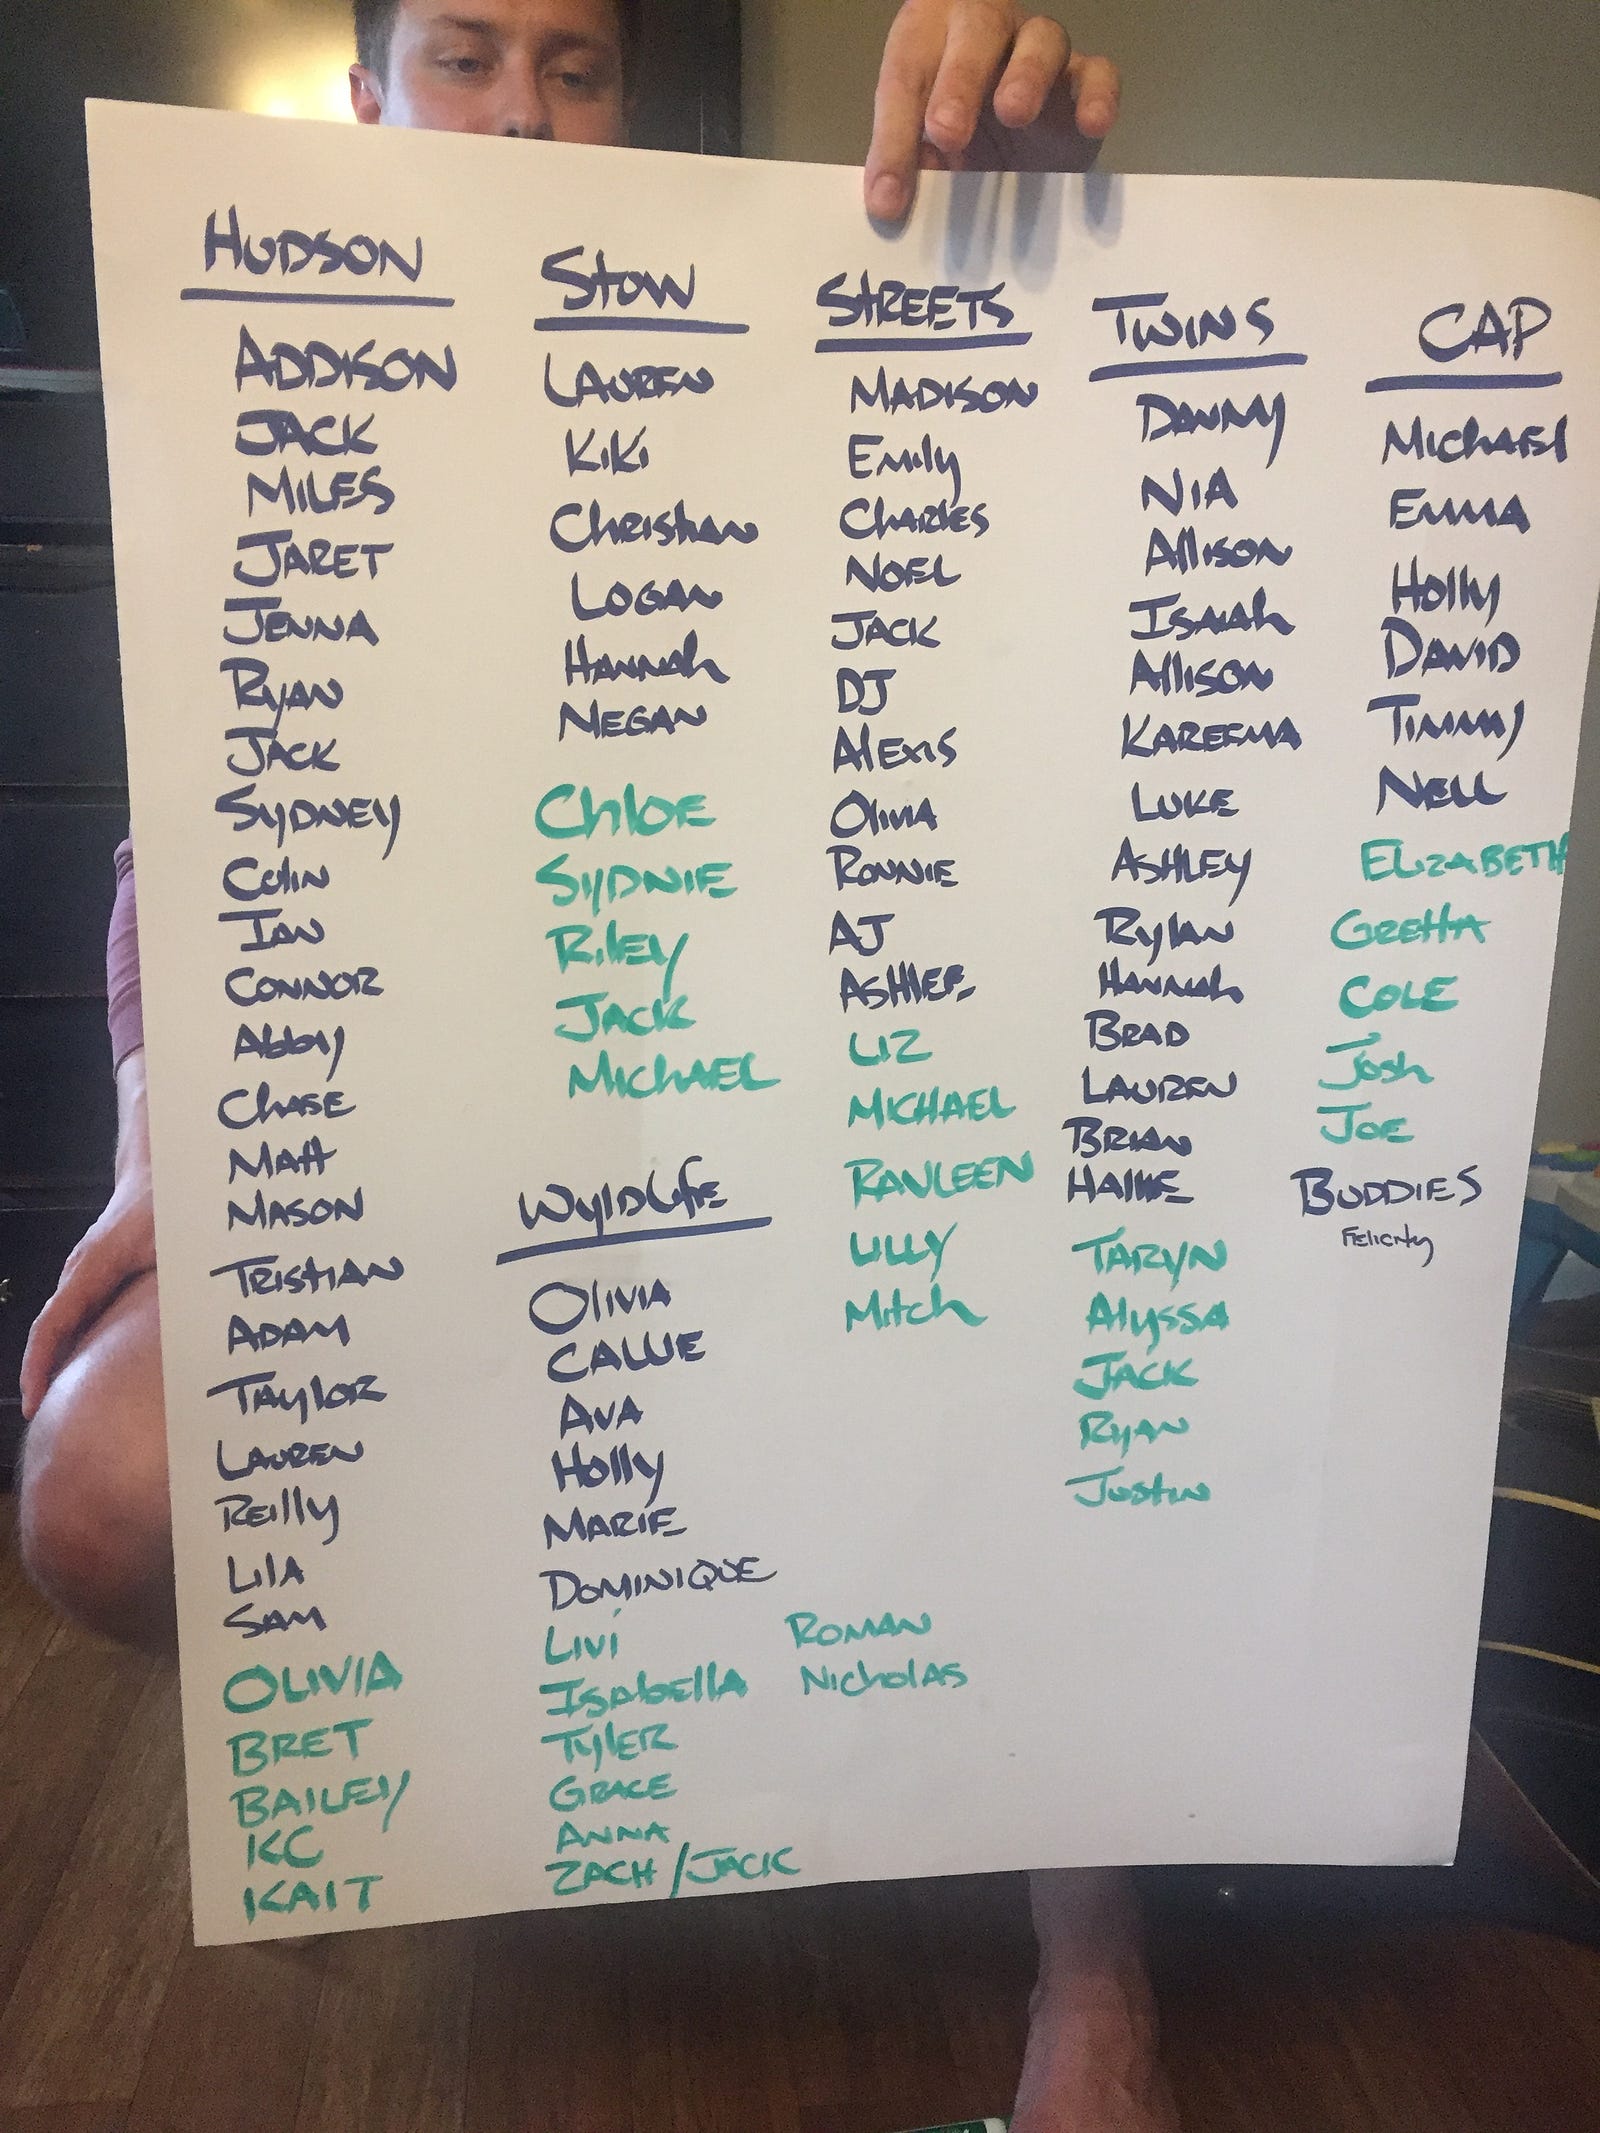 HUDSON
ADDISON
JACK
MILES
JARET
JENNA
RYAN
JACK
SYDNEY
Colin
IAN
CONNOR
Abby
CHASE
MATT
MASON
TRISTIAN
ADAM
TAYLOR
LAUREN
REILLY
LILA
SAM
OLIVIA
BRET
BAILEY
KC
KAIT
STOW
LAUREN
KIKI
CHRISTIAN
LOGAN
HANNAH
MEGAN
ChlOE
SYDNIE
RILEY
JACK
MICHAEL
WYldlife
OlIVIA
CALLIE
AVA
Holly
MARIE
DOMINIQUE
LIVI
ISAbEllA
TYLER
GRACE
ANNA
ZACH/JACK
STREETS
MADISON
Emily
CHARLES
NOEL
JACK
DJ
AlEXIS
OlIVIA
RONNIE
AJ
ASHLEE
LIZ
MICHAEL
RANLEEN
LILLY
Mitch
ROMAN
NicholAS
TWINS
DANNY
NIA
Allison
ISAIAh
Allison
KAREEMA
LUKE
ASHLEY
Rylan
HANNAh
BRAD
LAUREN
BRIAN
HALLIE
TARYN
Alyssa
JACK
RYAN
Justin
CAP
MichAEl
EMMA
Holly
DAVID
TIMMY
NELL
ELIZABETH
GRETTA
COLE
Josh
JOE
BUDDIES
FELICITY